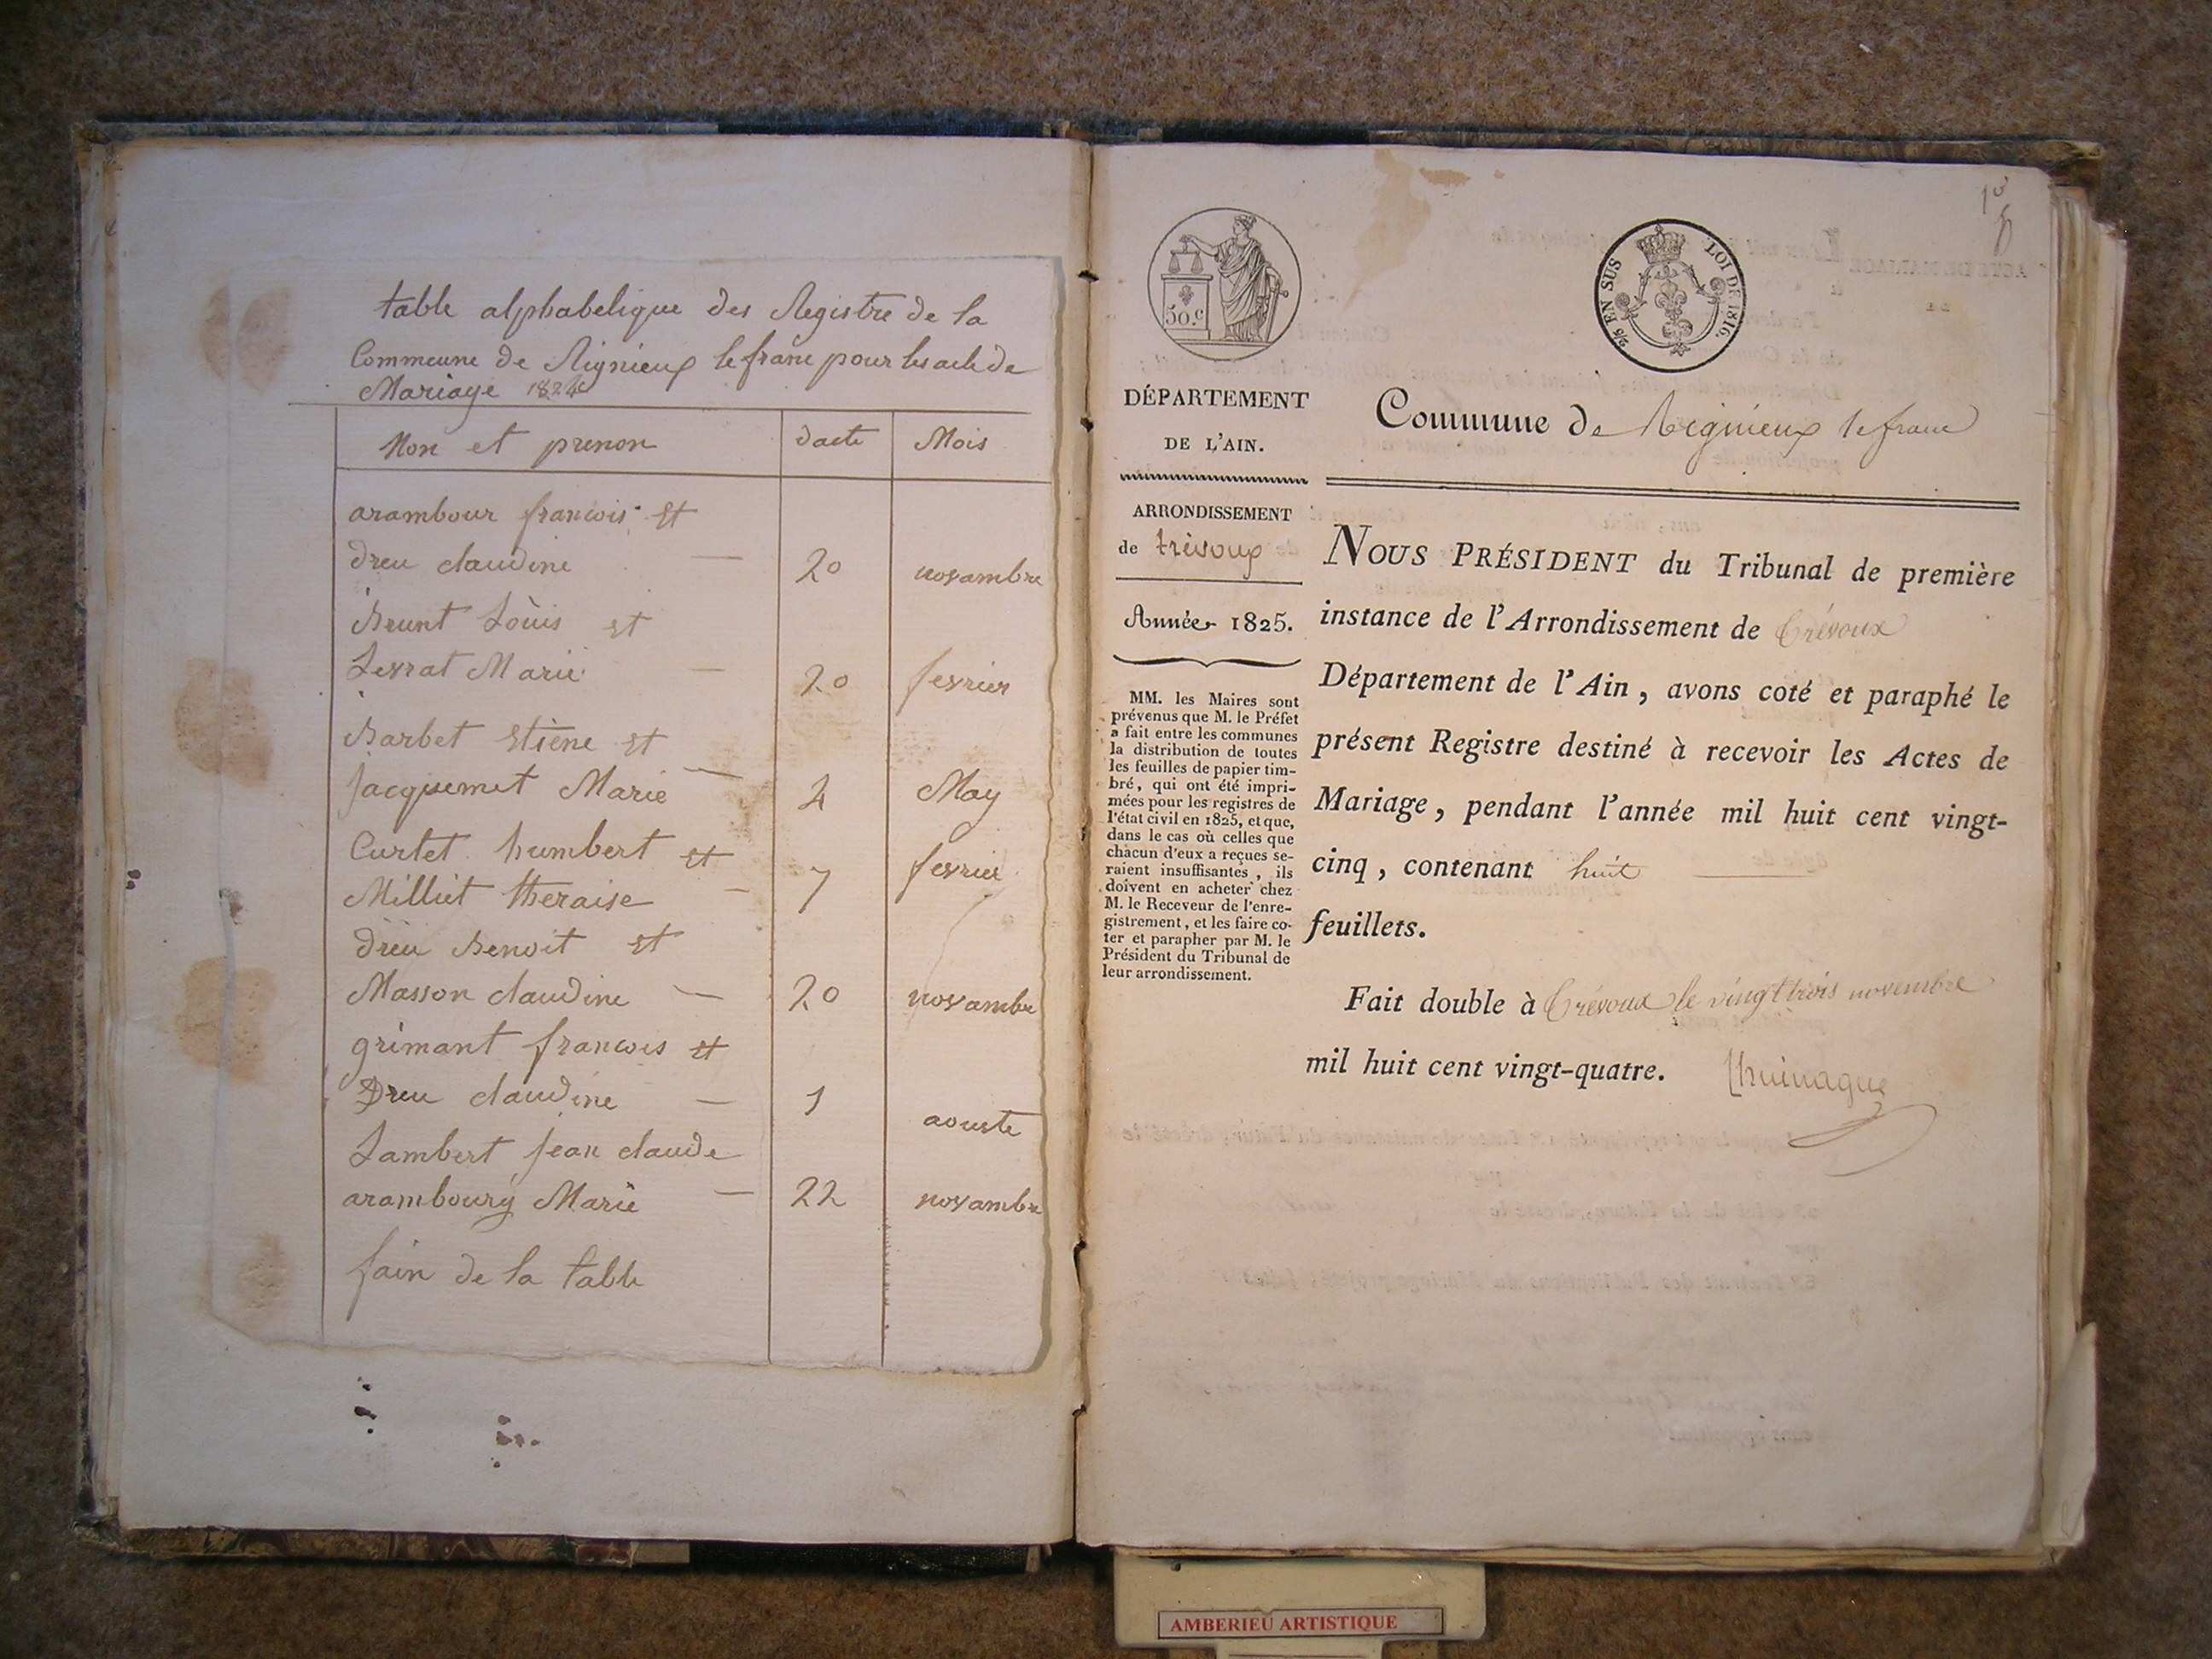 table alphabetique des Registre de la
Commeune de Rignieux lefranc pour les acte de
Mariage 1824
Non et prenon
dacte
Mois
arambour francois et
dreu claudine — 20 novambre
Brunt Louis et
Levrat Marie — 20 fevrier
Barbet Etiene et
jacquemet Marie — 4 May
Curtet humbert et
Milliet theraise — 7 fevrier
dreu Benoit et
Masson claudine — 20 novambre
grimant francois et
Dreu claudine — 1 aouste
Lambert jean claude
arambourg Marie — 22 novambre
fain de la table
50.c
EN SUS
LOI DE 1816.
DÉPARTEMENT
DE L'AIN.
ARRONDISSEMENT
de trévoux
Année 1825.
MM. les Maires sont
prévenus que M. le Préfet
a fait entre les communes
la distribution de toutes
les feuilles de papier tim-
bré, qui ont été impri-
mées pour les registres de
l'état civil en 1825, et que,
dans le cas où celles que
chacun d'eux a reçues se-
raient insuffisantes, ils
doivent en acheter chez
M. le Receveur de l'enre-
gistrement, et les faire co-
ter et parapher par M. le
Président du Tribunal de
leur arrondissement.
Commune de Rignieux le franc
NOUS PRÉSIDENT du Tribunal de première
instance de l'Arrondissement de Trévoux
Département de l'Ain, avons coté et paraphé le
présent Registre destiné à recevoir les Actes de
Mariage, pendant l'année mil huit cent vingt-
cinq, contenant huit
feuillets.
Fait double à Trévoux le vingt trois novembre
mil huit cent vingt-quatre.
AMBERIEU ARTISTIQUE